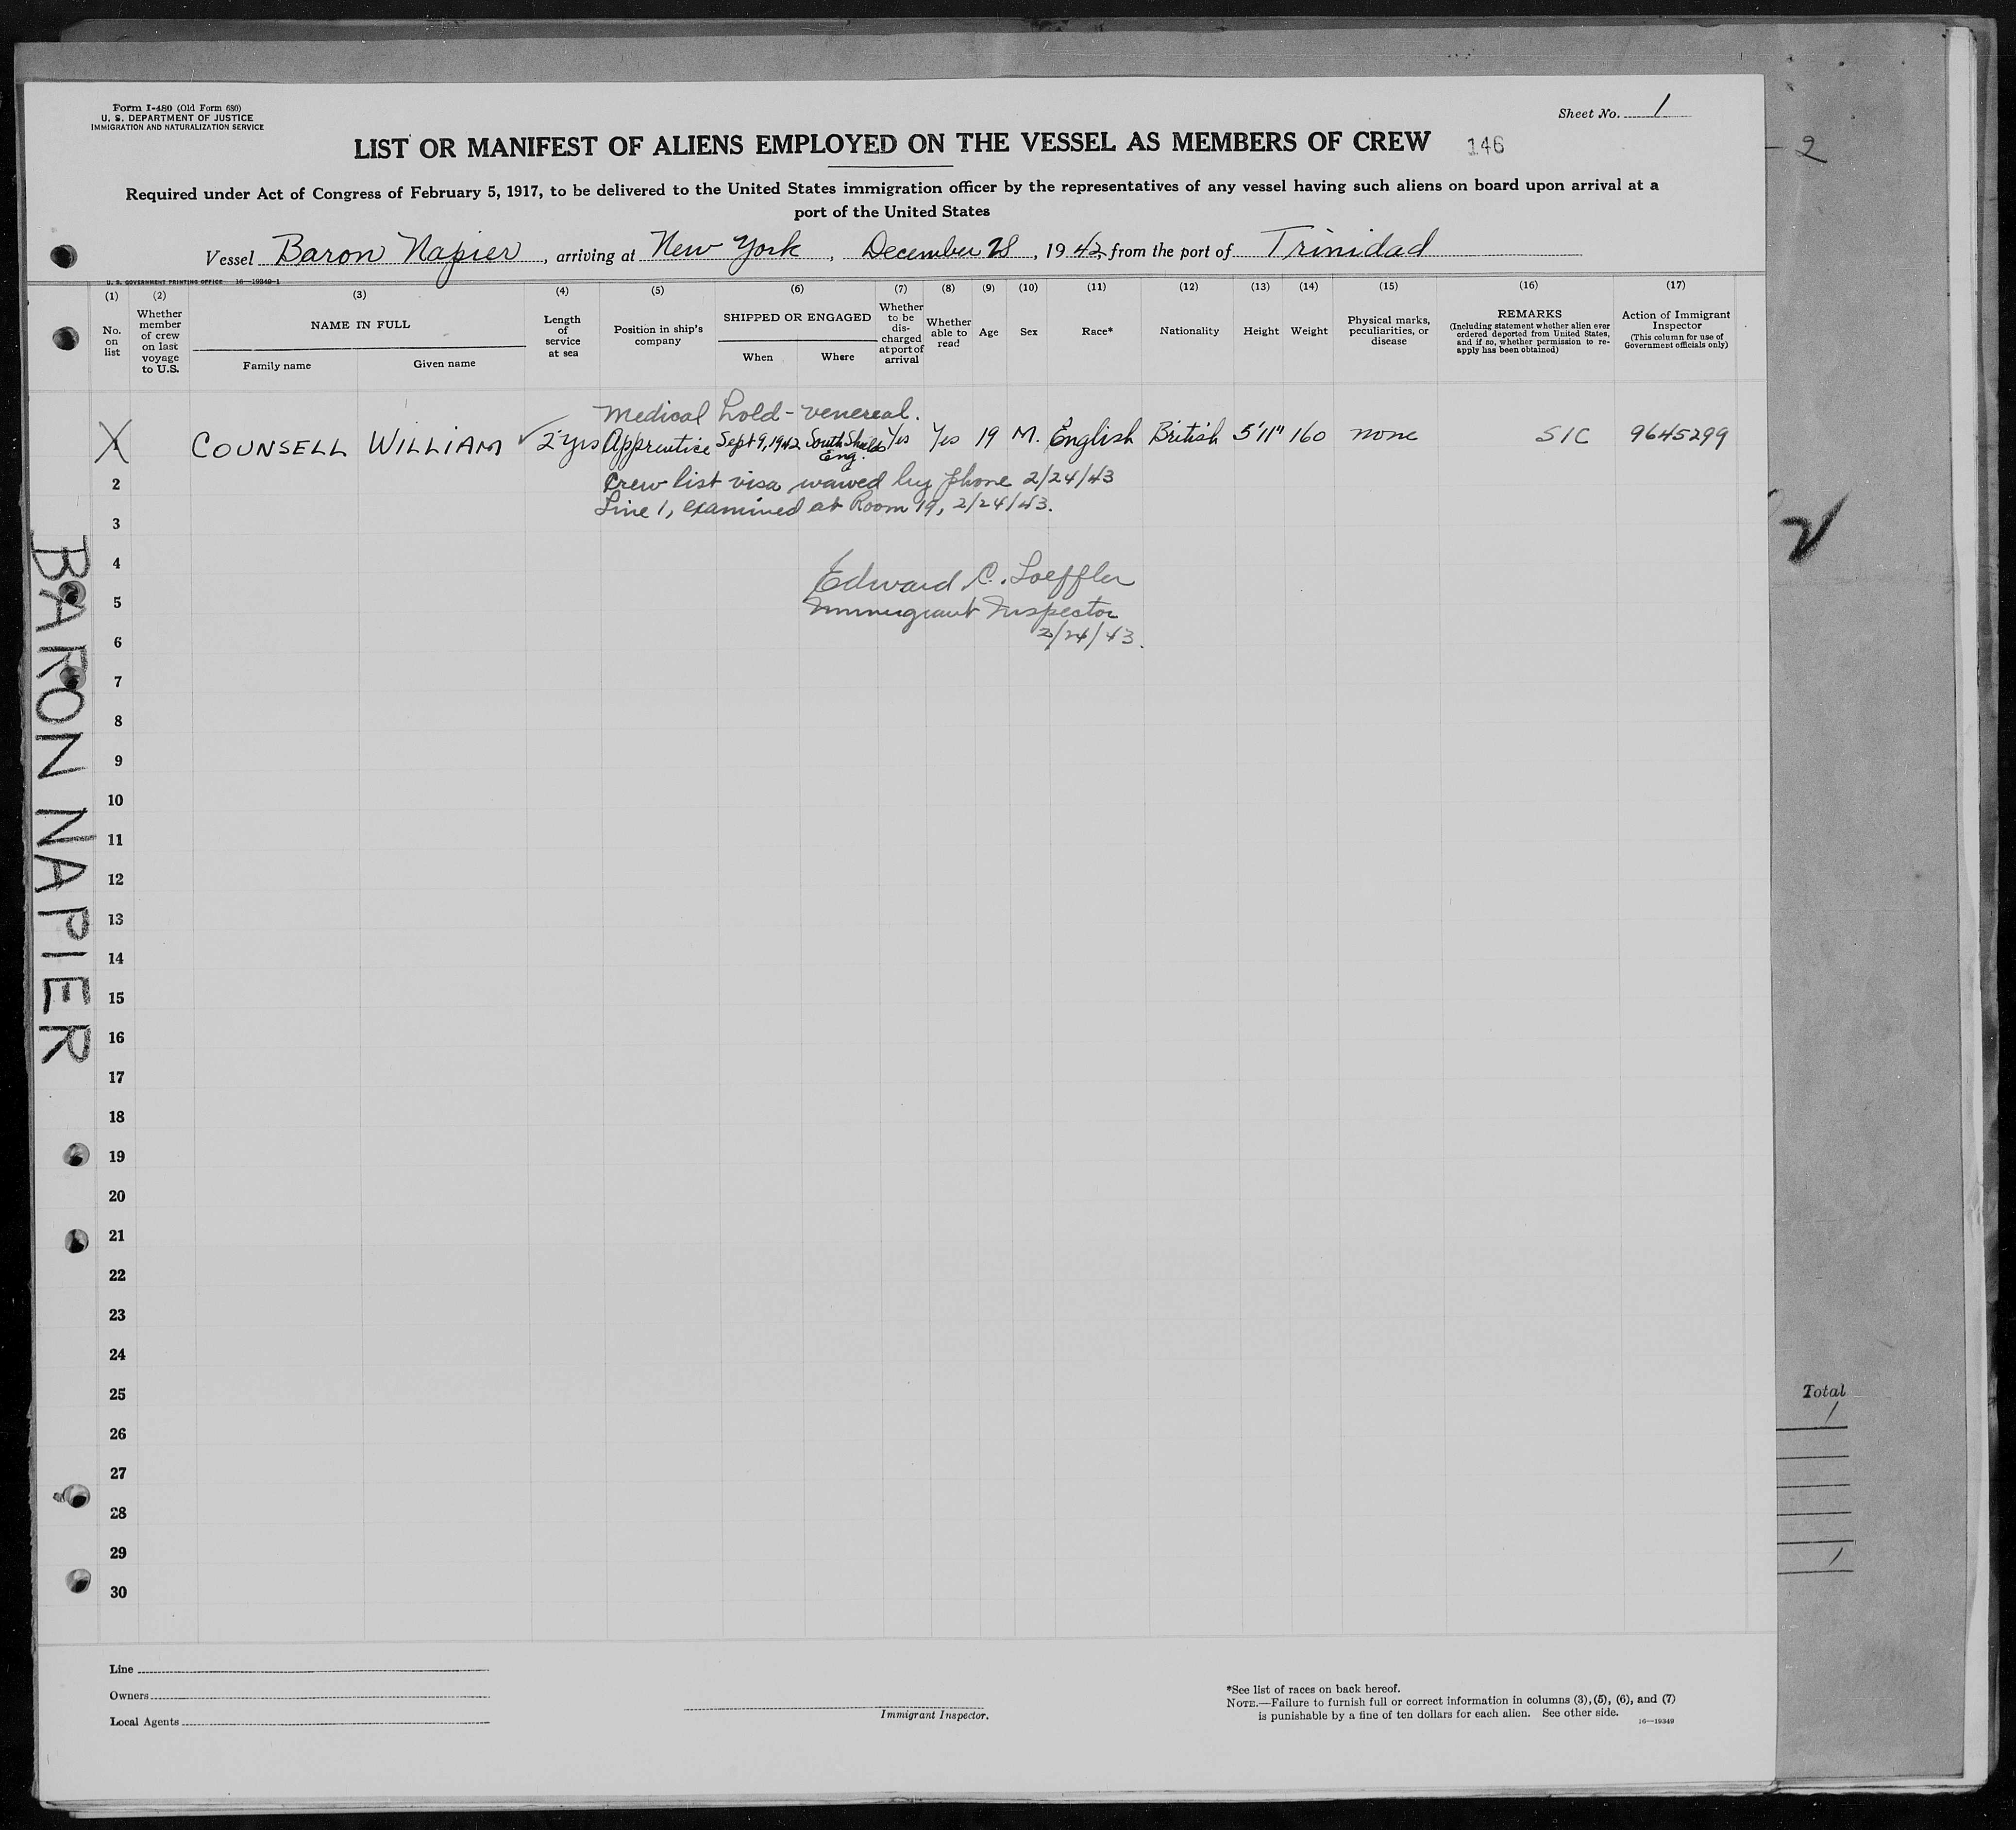 Form I-480 (Old Form 680)
U. S. DEPARTMENT OF JUSTICE
IMMIGRATION AND NATURALIZATION SERVICE
Sheet No. 1
LIST OR MANIFEST OF ALIENS EMPLOYED ON THE VESSEL AS MEMBERS OF CREW 146
Required under Act of Congress of February 5, 1917, to be delivered to the United States immigration officer by the representatives of any vessel having such aliens on board upon arrival at a
port of the United States
Vessel Baron Napier, arriving at New York, December 28, 1942 from the port of Trinidad
U. S. GOVERNMENT PRINTING OFFICE 16—19349-1
(1) No. on list
(2) Whether member of crew on last voyage to U.S.
(3) NAME IN FULL
Family name Given name
(4) Length of service at sea
(5) Position in ship's company
(6) SHIPPED OR ENGAGED
When Where
(7) Whether to be discharged at port of arrival
(8) Whether able to read
(9) Age
(10) Sex
(11) Race*
(12) Nationality
(13) Height
(14) Weight
(15) Physical marks, peculiarities, or disease
(16) REMARKS
(Including statement whether alien ever ordered deported from United States, and if so, whether permission to re-apply has been obtained)
(17) Action of Immigrant Inspector
(This column for use of Government officials only)
Medical hold - venereal.
X COUNSELL WILLIAM ✓ 2 yrs Apprentice Sept 9, 1942 South Shields Eng. Yes Yes 19 M. English British 5'11" 160 none S/C 9645299
2 Crew list visa waived by phone 2/24/43
3 Line 1, examined at Room 19, 2/24/43.
4 Edward C. Loeffler
5 Immigrant Inspector
6 2/24/43.
7
8
9
10
11
12
13
14
15
16
17
18
19
20
21
22
23
24
25
26
27
28
29
30
BARON NAPIER
Line
Owners
Local Agents
Immigrant Inspector.
*See list of races on back hereof.
NOTE.—Failure to furnish full or correct information in columns (3), (5), (6), and (7)
is punishable by a fine of ten dollars for each alien. See other side.
16—19349
2
Total
1
1